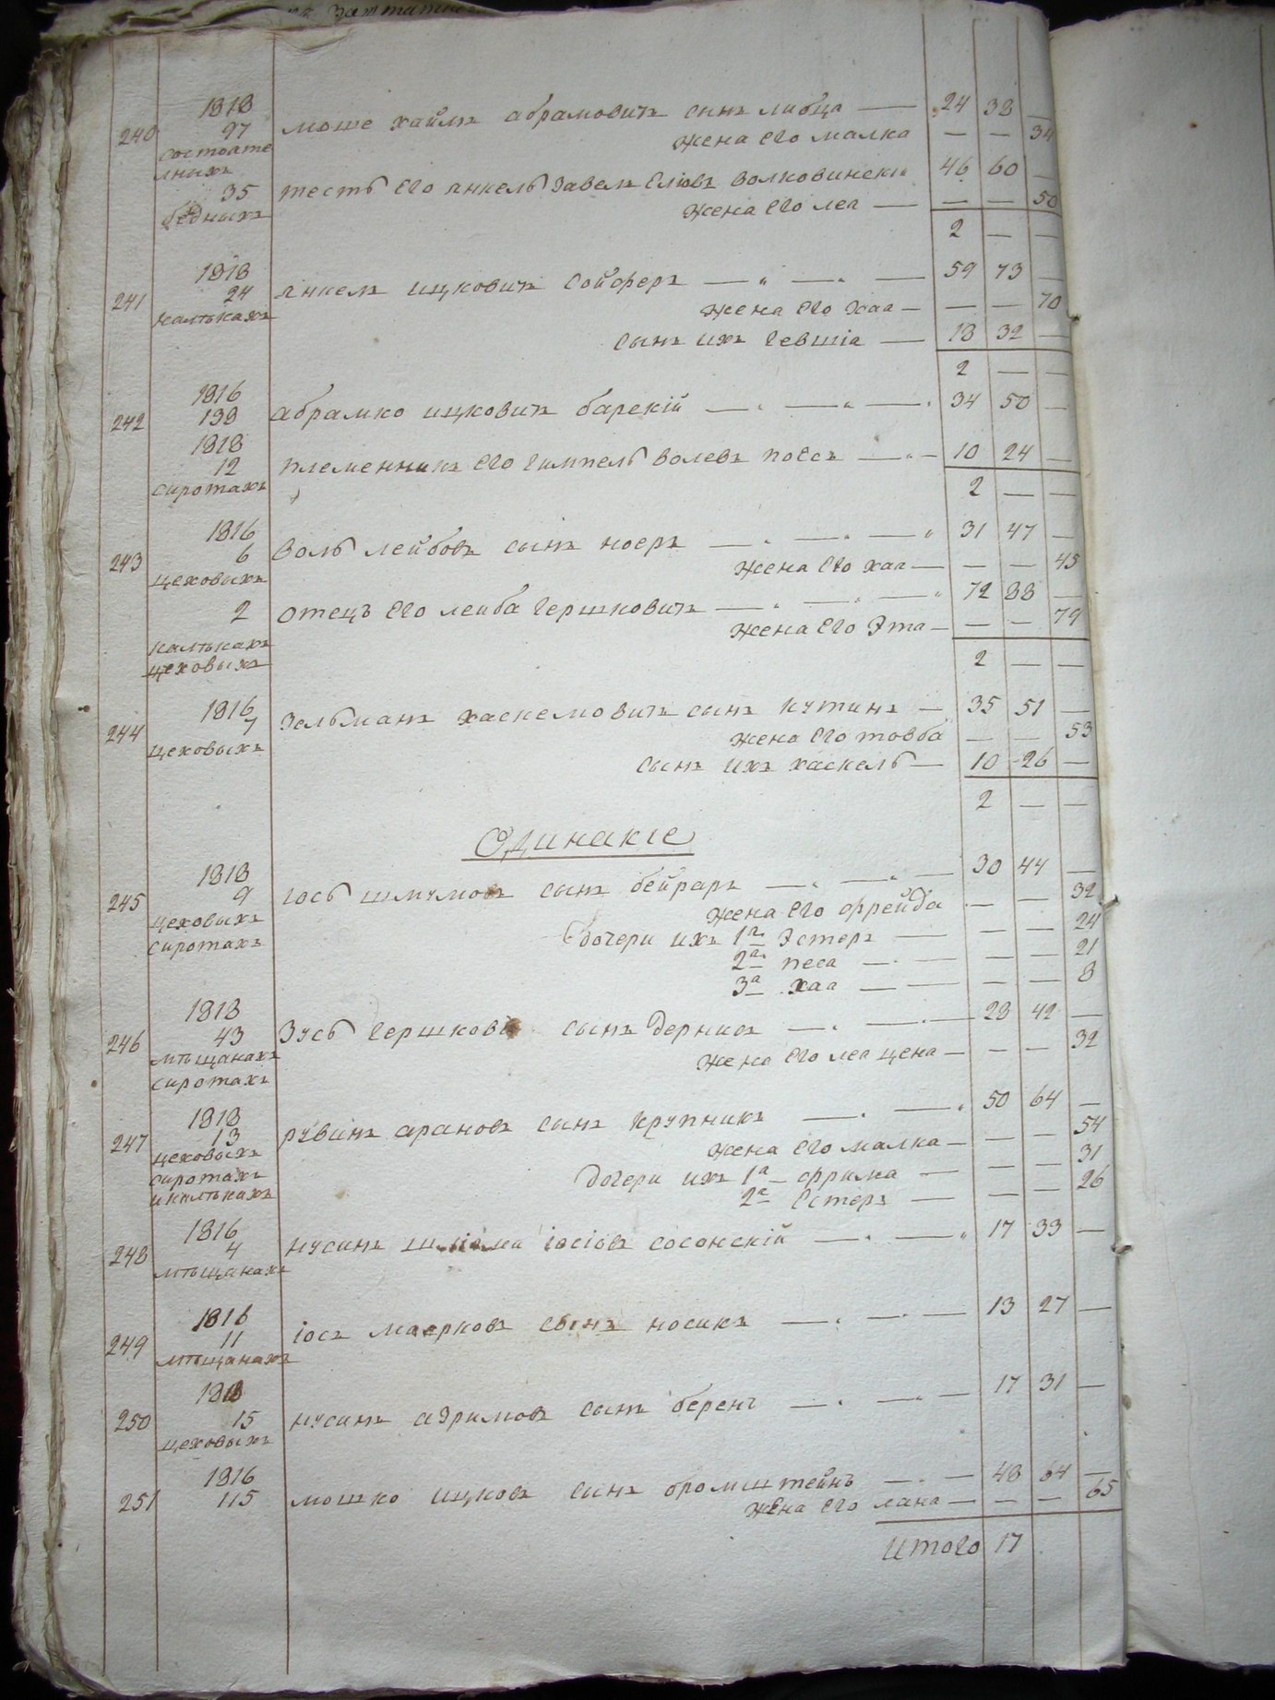 1818
240 97 моше хаймъ абрамовичъ сынъ либца — 24 38 —
состояте жена его малка — — 34
лныхъ
35 тесть его янкель завель елiовъ волковинскiй 46 60 —
бедныхъ жена его леа — — — 50
2 — —
1818
241 24 янкель ицковичъ сойферъ — — — 59 73 —
калькахъ жена его хаа — — — 70
сынъ ихъ гевшiа — 18 32 —
2 — —
1816
242 138 абрамко ицковичъ барскiй — — — 34 50 —
1818
12 племенникъ его гимпель волевъ песъ — — 10 24 —
сиротахъ
2 — —
1816
243 6 воль лейбовъ сынъ носеръ — — — 31 47 —
цеховыхъ жена его хаа — — — 45
2 отецъ его лейба гершковичъ — — — 72 88 —
калькахъ жена его Эта — — — 79
цеховыхъ 2 — —
1816
244 7 зельманъ хаскелювичъ сынъ кутикъ — 35 51 —
цеховыхъ жена его товба — — 53
сынъ ихъ хаскель — 10 26 —
2 — —
Одинакiе
1818
245 9 iось шмулювъ сынъ бейраръ — — — 30 44 —
цеховыхъ жена его фрейда — — 32
сиротахъ дочери ихъ 1я Эстеръ — — — 24
2я песа — — — — 21
3я хаа — — — — 8
1818
246 43 Зусь гершковъ сынъ дерникъ — — 28 42 —
мъщанахъ жена его леа цена — — — 32
сиротахъ
1818
247 13 рувинъ ароновъ сынъ крупникъ — — 50 64 —
цеховыхъ жена его малка — — — 54
сиротахъ дочери ихъ 1я фрима — — — 31
икалькахъ 2я Естеръ — — — 26
1816
248 4 нусинъ шлiома iосiовъ сосонскiй — — 17 33 —
мъщанахъ
1818
249 11 iосъ маерковъ сынъ носикъ — — — 13 27 —
мъщанахъ
1818
250 15 нусинъ сынъ беренъ — — — 17 31 —
цеховыхъ
1816
251 115 мошко ицковъ сынъ бромштейнъ — — 48 64 —
жена его хана — — — 65
итого 17